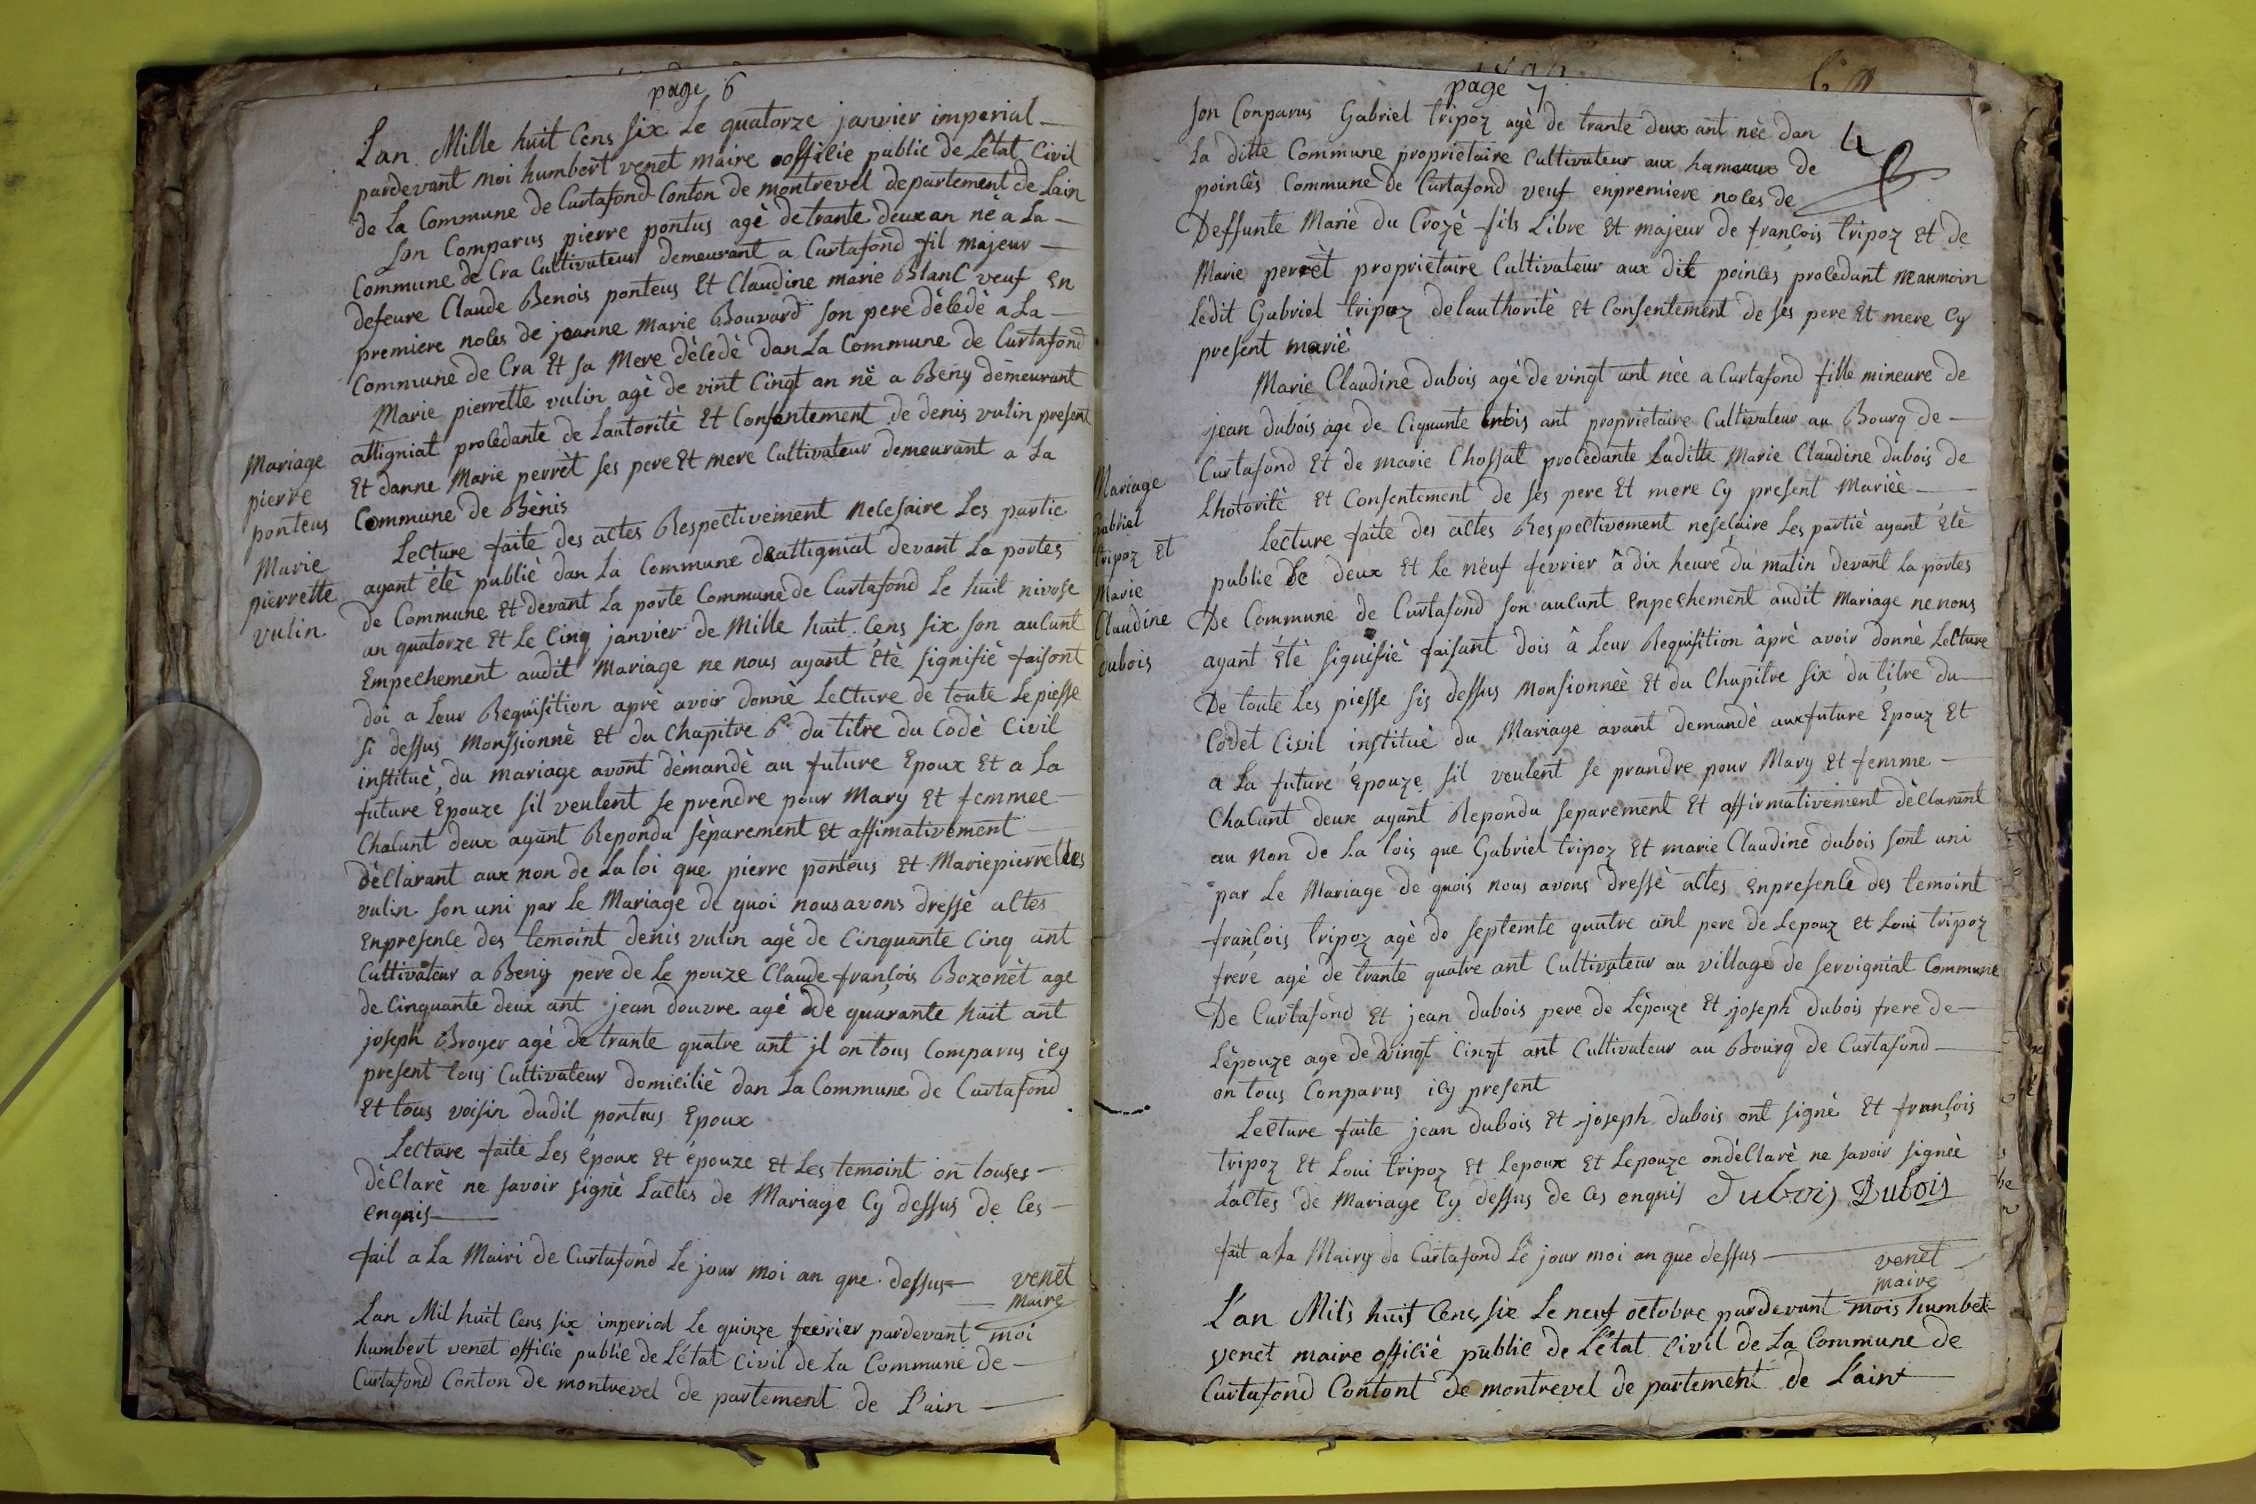 page 6
Lan Mille huit Cens six Le quatorze janvier imperial
pardevant Moi humbert venet Maire officie public de Létat Civil
de La Commune de Curtafond Conton de montrevel departement de Lain
Son Comparus pierre pontus agè de trante deux an nè a La
Commune de Cra Cultivateur demeurant a Curtafond fil majeur
defeure Claude Benois ponteus Et Claudine marie Blanc veuf En
premiere noles de jeanne Marie Bouvard son pere dècedè a La
Commune de Cra Et sa Mere dècedè dan La Commune de Curtafond
Marie pierrette vulin agè de vint Cinqt an nè a Beny demeurant
attigniat procedante de Lautoritè Et Consentement de denis vulin present
Et danne Marie perrèt ses pere Et mere Cultivateur demeurant a La
Commune de Bènis
Mariage
pierre
ponteus
Marie
pierrette
vulin
Lecture faite des actes Respectivement necesaire Les partie
ayant ètè publiè dan La Commune de attigniat devant La portes
de Commune Et devant La porte Commune de Curtafond Le huit nivose
an quatorze Et Le Cinq janvier de Mille huit Cens six son aucunt
Empechement audit Mariage ne nous ayant Etè signifiè faisont
doi a Leur Requisition aprè avoir donnè Lecture de toute Le piesse
si dessus Monssionnè Et du Chapitre 6 du titre du Codè Civil
instituè du mariage avont dèmandè au future Epoux Et a La
future Epouze sil veulent se prendre pour Mary Et femmee
Chacunt deux ayant Repondu sèparement Et affimativement
dèclarant aux non de La loi que pierre ponteus Et Marie pierrettes
vulin son uni par Le Mariage de quoi nous avons dressè actes
Enpresence des temoint denis vulin agè de Cinquante Cinq ant
Cultivateur a Beny pere de Le pouze Claude françois Bozonèt age
de Cinquante deux ant jean douvre agè de quarante huit ant
joseph Broyer agè de trante quatre ant jl on tous Comparus icy
present tous Cultivateur domiciliè dan La Commune de Curtafond
Et tous voisin dudit ponteus Epoux
Lecture faite Les époux Et épouze Et Les temoint on touses
dèclarè ne savoir signè Lactes de Mariage Cy dessus de Ces
enquis
fait a La Mairi de Curtafond Le jour moi an que dessus venet
Maire
Lan Mil huit Cens six imperial Le quinze fevrier pardevant moi
humbert venet officiè public de Létat Civil de La Commune de
Curtafond Conton de montrevel de partement de L'ain
page 7
4
son Conparus Gabriel tripoz agè de trante deux ant nèe dan
La ditte Commune proprietaire Cultivateur aux hamaux de
poincès Commune de Curtafond veuf enpremiere noles de
Deffunte Marie du Crozè fils Libre Et majeur de françois tripoz Et de
Marie perrèt proprietaire Cultivateur aux dite poinces procedant neanmoin
Ledit Gabriel tripoz delauthoritè Et Consentement de ses pere Et mere Cy
present mariè
Marie Claudine dubois agè de vingt ant nèe a Curtafond fille mineure de
jean dubois age de Ciquante trois ant proprietaire Cultivateur au Bourg de
Curtafond Et de marie Chossat procedante Laditte Marie Claudine dubois de
Lhotoritè Et Consentement de ses pere Et mere Cy present Mariée
Mariage
Gabriel
tripoz Et
Marie
Claudine
dubois
Lecture faite des actes Respectivement neselaire Les partiè ayant ètè
publie Le deux Et Le neuf fevrier à dix heure du matin devant La portes
De Commune de Curtafond son aucunt Enpechement audit Mariage ne nous
ayant Etè signifiè faisant dois à Leur Requisition âprè avoir donnè Lecture
De toute Les piesse sis dessus Monsionnèè Et du Chapitre six du titre du
Codet Civil instituè du Mariage avant demandè aux future Epouz Et
a La future Epouze sil veulent se prandre pour Mary Et femme
Chacunt deux ayant Repondu separement Et affirmativement dèclarant
au Non de La lois que Gabriel tripoz Et marie Claudine dubois sont uni
par Le Mariage de quois nous avons dressè actes Enpresence des temoint
françois tripoz agè de septemte quatre ant pere de Lepouz Et Loui tripoz
frere agè de trante quatre ant Cultivateur au village de servigniat Commune
De Curtafond Et jean dubois pere de Lépouze Et joseph dubois frere de
Lépouze age de vingt Cinqt ant Cultivateur au Bourg de Curtafond
on tous Conparus icy present
Lecture faite jean dubois Et joseph dubois ont signè Et françois
tripoz Et Loui tripoz Et Lepoux Et Lepouze on dèclarè ne savoir signèe
Lactes de Mariage Cy dessus de Ces enquis Dubois Dubois
fait a La Mairy de Curtafond Le jour moi an que dessus venet
maire
L'an Mils huit Cens six Le neuf octobre pardevant mois humbet
venet maire officiè public de Létat Civil de La Commune de
Curtafond Contont de montrevel de partement de L'aint